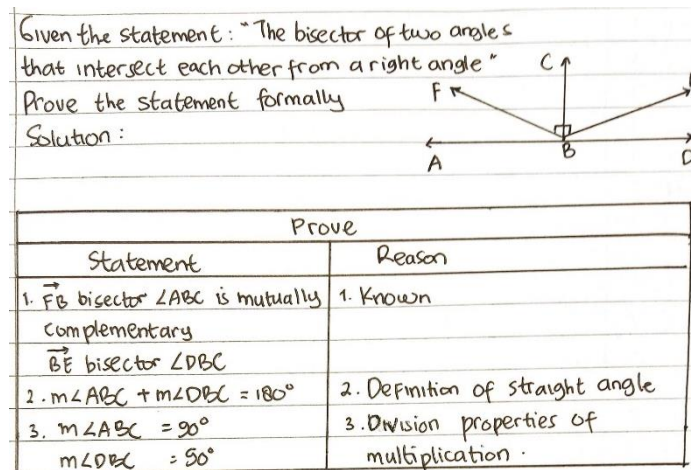 Given the statement: "The bisector of two angles
that intersect each other from a right angle"
Prove the statement formally
Solution:
C
F
A
B
D
Prove
Statement
Reason
1. FB bisector ∠ABC is mutually
complementary
BE bisector ∠DBC
1. Known
2. m∠ABC + m∠DBC = 180°
2. Definition of straight angle
3. m∠ABC = 90°
m∠DBC = 50°
3. Division properties of
multiplication.